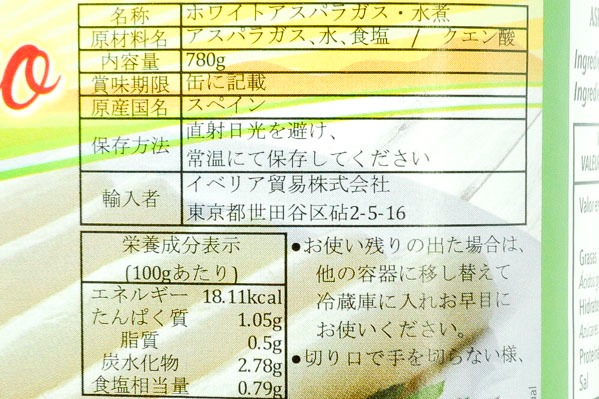 名称 ホワイトアスパラガス・水煮
原材料名 アスパラガス､水､食塩 / クエン酸
内容量 780g
賞味期限 缶に記載
原産国名 スペイン
保存方法 直射日光を避け、
常温にて保存してください
輸入者 イベリア貿易株式会社
東京都世田谷区砧2-5-16
栄養成分表示
(100gあたり)
エネルギー 18.11kcal
たんぱく質 1.05g
脂質 0.5g
炭水化物 2.78g
食塩相当量 0.79g
●お使い残りの出た場合は、
他の容器に移し替えて
冷蔵庫に入れお早目に
お使いください。
●切り口で手を切らない様、
Ingredie
Ingredie
VALEU
Valor en
Grasas
Ácidos g
Hidrato
Azúcares
Proteína
Sal